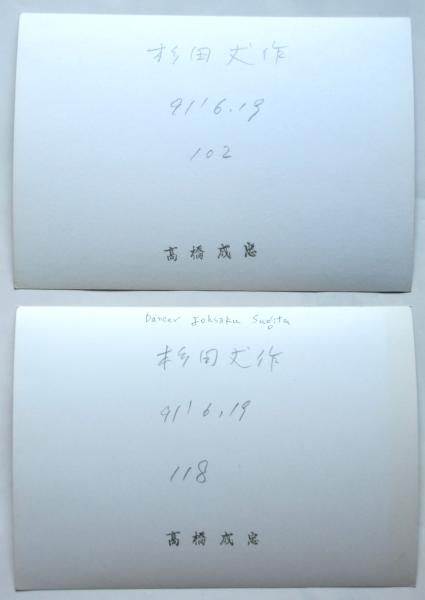 杉田丈作
91'6.19
102
高橋成忠
Dancer Johsaku Sugita
杉田丈作
91'6.19
118
高橋成忠